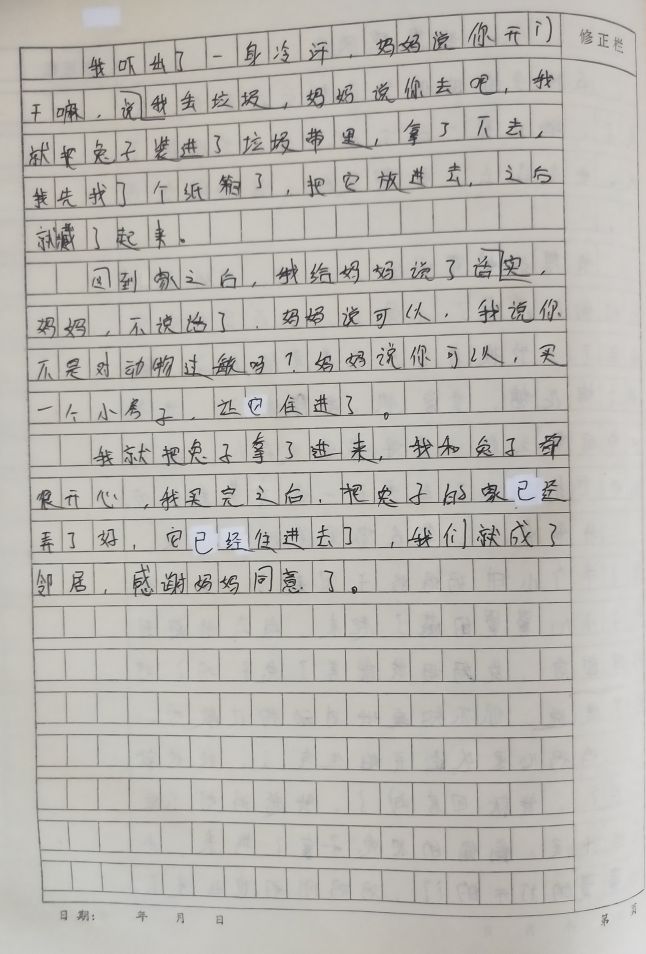 我吓出了一身冷汗，妈妈说你开门
修正栏
干嘛，说我去垃圾，妈妈说你去吧，我
就把兔子装进了垃圾带里，拿了下去，
我先找了个纸箱了，把它放进去，之后
就藏了起来。
回到家之后，我给妈妈说了话实，
妈妈，不说话了，妈妈说可以，我说你
不是对动物过敏吗？妈妈说你可以，买
一个小房子，让它住进了。
我就把兔子拿了进来，我和兔子都
很开心，我买完之后，把兔子的家已经
弄了好，它已经住进去了，我们就成了
邻居，感谢妈妈同意了。
日期： 年 月 日
第 页